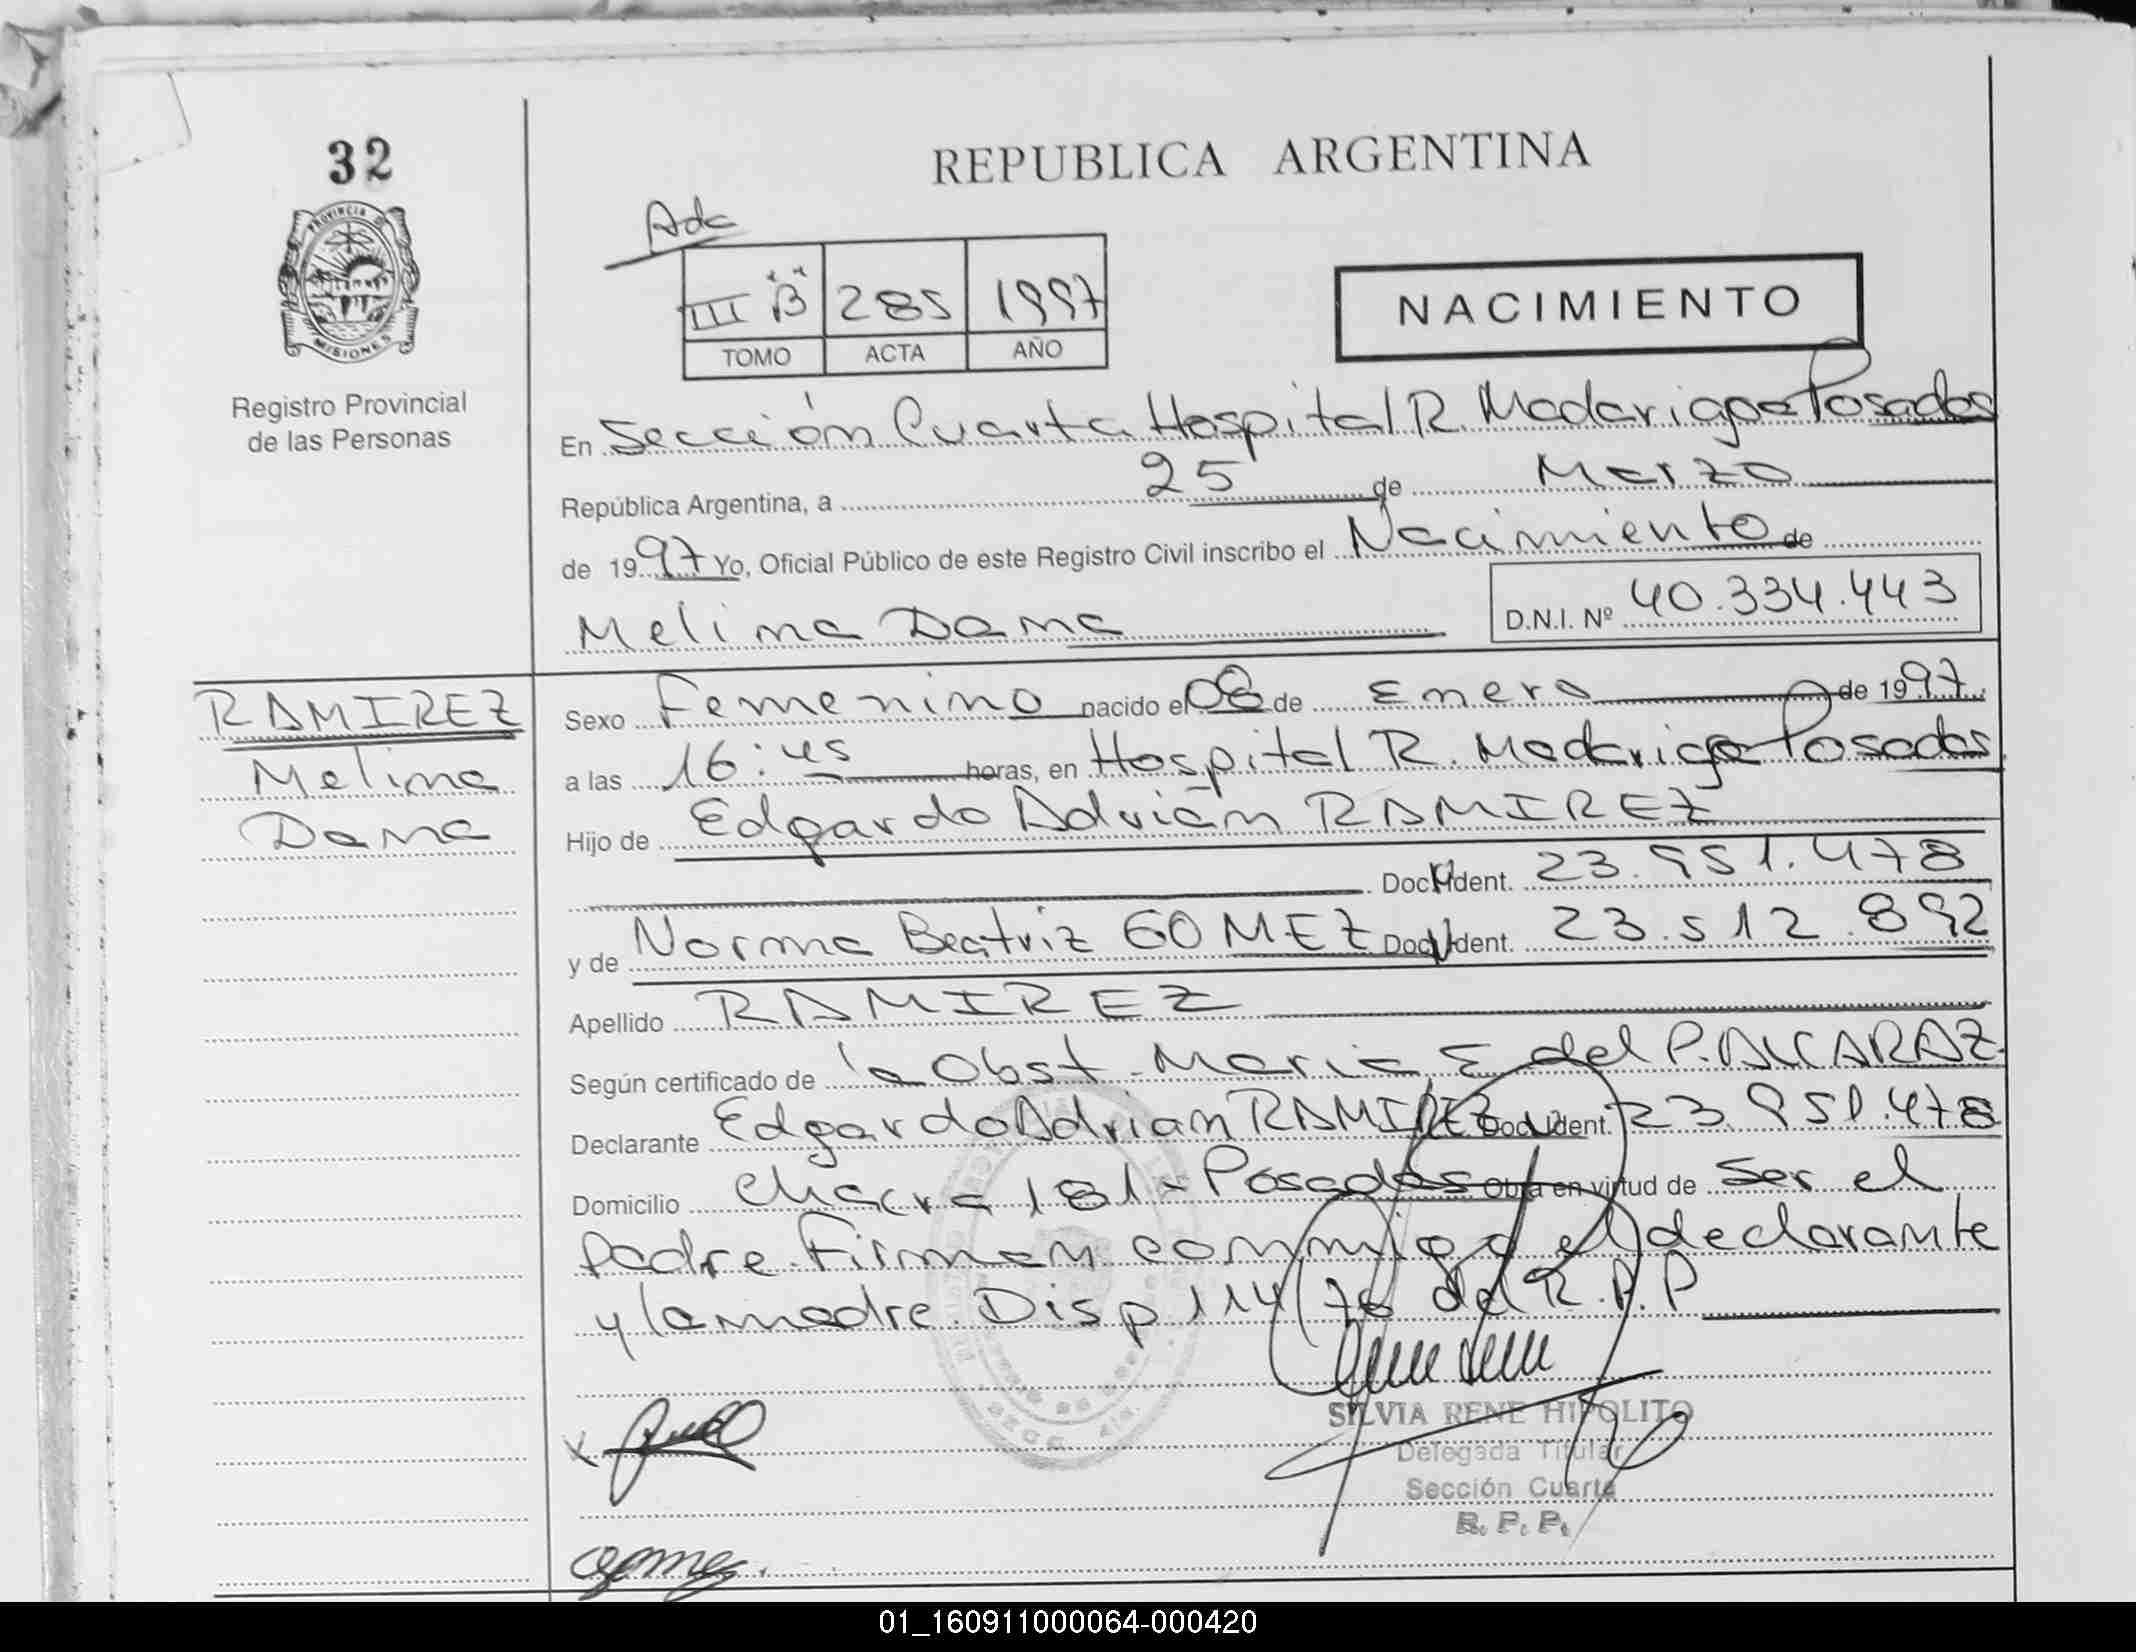 32
REPUBLICA ARGENTINA
PROVINCIA DE
MISIONES
Registro Provincial
de las Personas
III "B" 285 1997
TOMO ACTA AÑO
NACIMIENTO
En Sección Cuarta Hospital R. Madariaga Posadas
República Argentina, a 25 de Marzo
de 1997 Yo, Oficial Público de este Registro Civil inscribo el Nacimiento de
Melina Dana
D.N.I. Nº 40.334.443
RAMIREZ
Melina
Dana
Sexo Femenino nacido el 08 de Enero de 1997
a las 16:45 horas, en Hospital R. Madariaga Posadas
Hijo de Edgardo Adrián RAMIREZ
Doc. Ident. 23.951.478
y de Norma Beatriz GOMEZ Doc. Ident. 23.512.892
Apellido RAMIREZ
Según certificado de la Obst. Maria E del P. ALCARAZ
Declarante Edgardo Adrian RAMIREZ Doc. Ident. 23.951.478
Domicilio chacra 181 - Posadas Obra en virtud de Ser el
padre. Firman conmigo el declarante
y la madre. Disp 114/76 del R.P.P
SILVIA RENE HIPOLITO
Delegada Titular
Sección Cuarta
R. P. P.
X
01_160911000064-000420